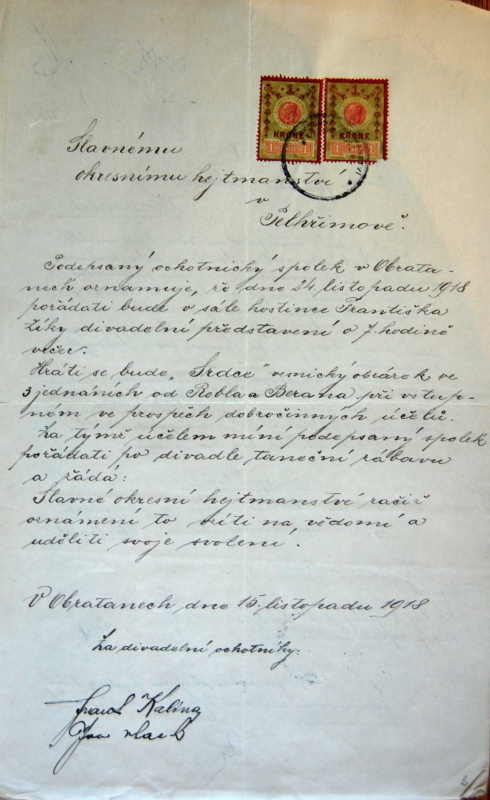 1 1
KRONE KRONE
1 1 1 1
Slavnému
okresnímu hejtmanství
v
Pelhřimově.
Podepsaný ochotnický spolek v Obrata-
nech oznamuje, že dne 24. listopadu 1918
pořádati bude v sále hostince Františka
Ziky divadelní představení o 7. hodině
večer.
Hráti se bude „Srdce" vesnický obrázek ve
3 jednáních od Robla a Berana při vstup-
ném ve prospěch dobročinných účelů.
Za týmž účelem míní podepsaný spolek
pořádati po divadle taneční zábavu
a žádá:
Slavné okresní hejtmanství račiž
oznámení to vzíti na vědomí a
uděliti svoje svolení.
V Obratanech dne 15. listopadu 1918
Za divadelní ochotníky:
Kalina